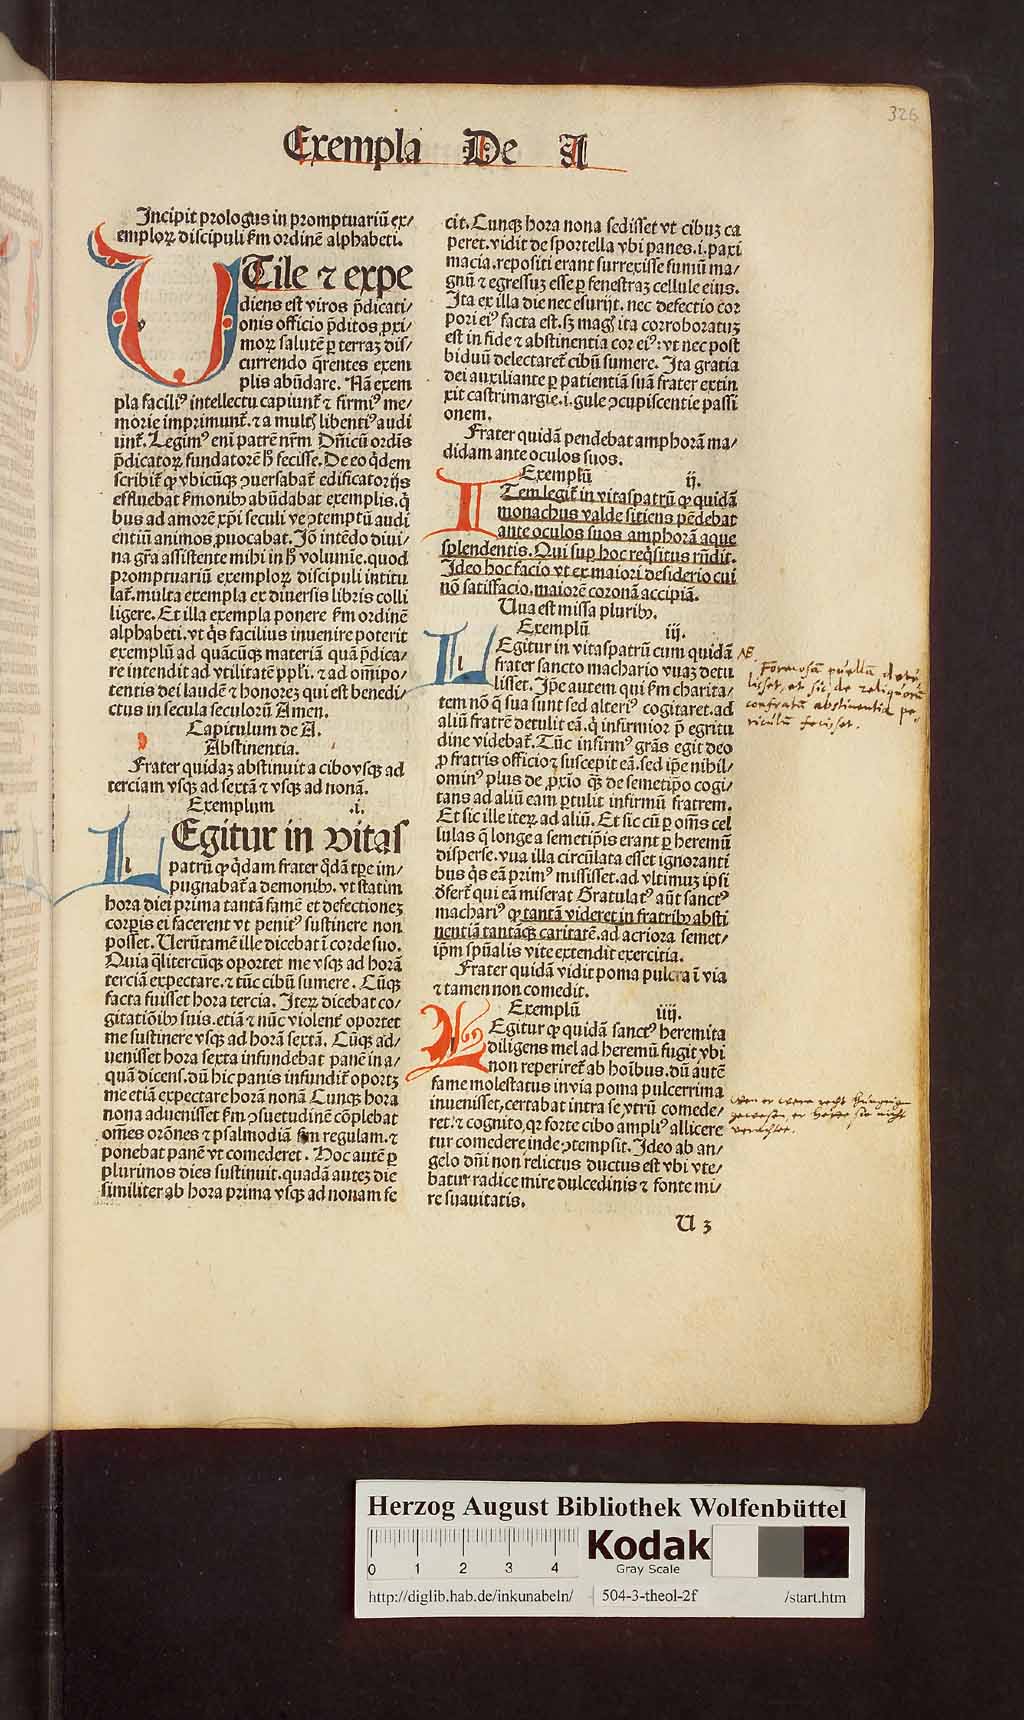 326
Exempla De A
Incipit prologus in promptuariū ex⸗
emploꝝ discipuli ẜm ordinē alphabeti.
UTile ⁊ expe
diens est viros p̄dicati⸗
onis officio p̄ditos ꝓxi⸗
moꝝ salutē ꝑ terraꝫ dis⸗
currendo q̄rentes exem
plis abūdare. Nā exem
pla faciliꝰ intellectu capiunt᷑ ⁊ firmiꝰ me⸗
morie imprimunt᷑. ⁊ a mult̉ libentiꝰ audi
unt᷑. Legimꝰ eni patrē nr̄m Dn̄icū ordīs
p̄dicatoꝝ fundatorē h̉ fecisse. De eo q̄dem
scribit᷑ ꝙ vbicūqꝫ ꝯuersabat᷑ edificatorijs
effluebat ẜmonibꝰ abūdabat exemplis. q̇
bus ad amorē xp̄i seculi ve ꝯtemptū audi
entiū animos ꝓuocabat. Jō intēdo diui⸗
na gr̄a assistente mihi in h̉ volumīe. quod
promptuariū exemploꝝ discipuli intitu
lat᷑. multa exempla ex diuersis libris colli
ligere. Et illa exempla ponere ẜm ordinē
alphabeti. vt q̇s facilius inuenire poterit
exemplū ad quācūqꝫ materiā quā p̄dica⸗
re intendit ad vtilitatē ppl̓i. ⁊ ad om̄ipo⸗
tentis dei laudē ⁊ honoreꝫ qui est benedi⸗
ctus in secula seculorū Amen.
Capitulum de A.
Abstinentia.
Frater quidaꝫ abstinuit a cibo vsqꝫ ad
terciam vsqꝫ ad sextā ⁊ vsqꝫ ad nonā.
Exemplum .i.
LEgitur in vitas
patrū ꝙ q̇dam frater q̇dā tp̄e im⸗
pugnabat᷑ a demonibꝰ. vt statim
hora diei prima tantā famē et defectioneꝫ
corꝑis ei facerent vt penitꝰ sustinere non
posset. Uerūtamē ille dicebat ī corde suo.
Quia q̄litercūqꝫ oportet me vsqꝫ ad horā
terciā expectare. ⁊ tūc cibū sumere. Cūqꝫ
facta fuisset hora tercia. Iteꝝ dicebat co⸗
gitatiōibꝰ suis. etiā ⁊ nūc violent᷑ oportet
me sustinere vsqꝫ ad horā sextā. Cūqꝫ ad⸗
uenisset hora sexta infundebat panē in a⸗
quā dicens. dū hic panis infundit᷑ oportꝫ
me etiā expectare horā nonā Cunqꝫ hora
nona aduenisset ẜm ꝯsuetudinē cōplebat
om̄es orōnes ⁊ psalmodiā ẜm regulam. ⁊
ponebat panē vt comederet. Hoc autē ꝑ
plurimos dies sustinuit. quadā auteꝫ die
similiter ab hora prima vsqꝫ ad nonam fe
cit. Cunqꝫ hora nona sedisset vt cibuꝫ ca
peret. vidit de sportella vbi panes .i. paxi
macia. repositi erant surrexisse fumū ma⸗
gnū ⁊ egressuꝫ esse ꝑ fenestraꝫ cellule eius.
Ita ex illa die nec esurijt. nec defectio cor
pori eiꝰ facta est. sꝫ mag̉ ita corroboratuꝫ
est in fide ⁊ abstinentia cor eiꝰ: vt nec post
biduū delectaret᷑ cibū sumere. Ita gratia
dei auxiliante ꝑ patientiā suā frater extin
xit castrimargie .i. gule ꝯcupiscentie passi
onem.
Frater quidā pendebat amphorā ma⸗
didam ante oculos suos.
Exemplū ii.
ITem legit᷑ in vitaspatrū ꝙ quidā
monachus valde sitiens pēdebat
ante oculos suos amphorā aque
splendentis. Qui suꝑ hoc req̇situs rn̄dit.
Ideo hoc facio vt ex maiori desiderio cui
nō satisfacio. maiorē coronā accipiā.
Uua est missa pluribꝰ.
Exemplū iii.
LEgitur in vitaspatrū cum quidā
frater sancto machario vuaꝫ detu
lisset. Ip̄e autem qui ẜm charita⸗
tem nō q̄ sua sunt sed alteriꝰ cogitaret. ad
aliū fratrē detulit eā. q̇ infirmior p̄ egritu
dine videbat᷑. Tūc infirmꝰ grās egit deo
ꝓ fratris officio ⁊ suscepit eā. sed ip̄e nihil⸗
ominꝰ plus de ꝓxīo q̄ꝫ de semetip̄o cogi⸗
tans ad aliū eam ꝑtulit infirmū fratrem.
Et sic ille iteꝝ ad aliū. Et sic cū ꝑ om̄s cel
lulas q̄ longe a semetip̄is erant ꝑ heremū
disperse. vua illa circūlata esset ignoranti
bus q̇s eā primꝰ misisset. ad vltimuꝫ ipsi
dfert᷑ qui eā miserat Gratulatꝰ aūt sanctꝰ
machariꝰ ꝙ tantā videret in fratribꝰ absti
nentiā tantāqꝫ caritatē. ad acriora semet⸗
ip̄m sp̄ualis vite extendit exercitia.
Frater quidā vidit poma pulcra ī via
⁊ tamen non comedit.
Exemplū iiij.
LEgitur ꝙ quidā sanctꝰ heremita
diligens mel ad heremū fugit vbi
non reperiret᷑ ab hoībus. dū autē
fame molestatus in via poma pulcerrima
inuenisset, certabat intra se vtrū comede⸗
ret. ⁊ cognito, qꝛ forte cibo ampliꝰ allicere
tur comedere inde ꝯtempsit. Ideo ab an⸗
gelo dn̄i non relictus ductus est vbi vte⸗
batur radice mire dulcedinis ⁊ fonte mi⸗
re suauitatis.
U 3
NB.
Formosā puellā detu⸗
lisset, et sic de reliquorū
confratrū abstinentia pe⸗
riculū fecisset.
Herzog August Bibliothek Wolfenbüttel
0 1 2 3 4
Kodak
Gray Scale
http://diglib.hab.de/inkunabeln/ 504-3-theol-2f /start.htm